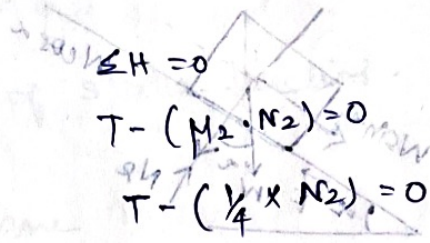 ΣH = 0
T - (μ2 · N2) = 0
T - (1/4 × N2) = 0